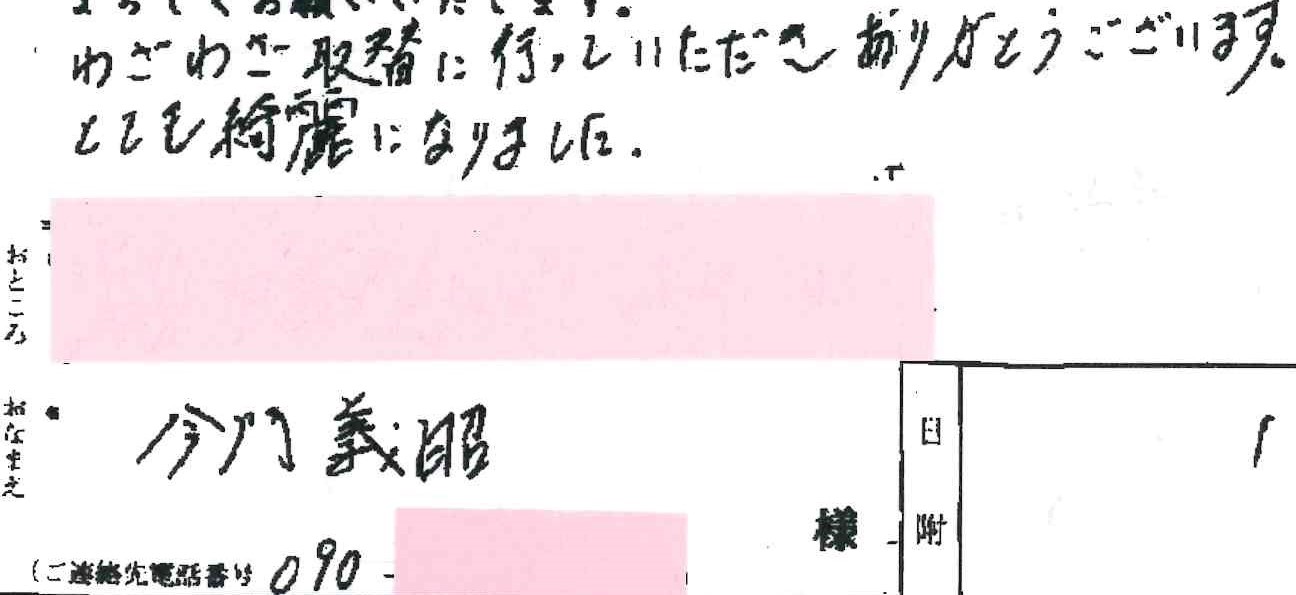 よろしくお願いいたします。
わざわざ取替に行っていただきありがとうございます。
とても綺麗になりました。
おところ
おなまえ
今門 義昭
様
日附
1
(ご連絡先電話番号 090 -